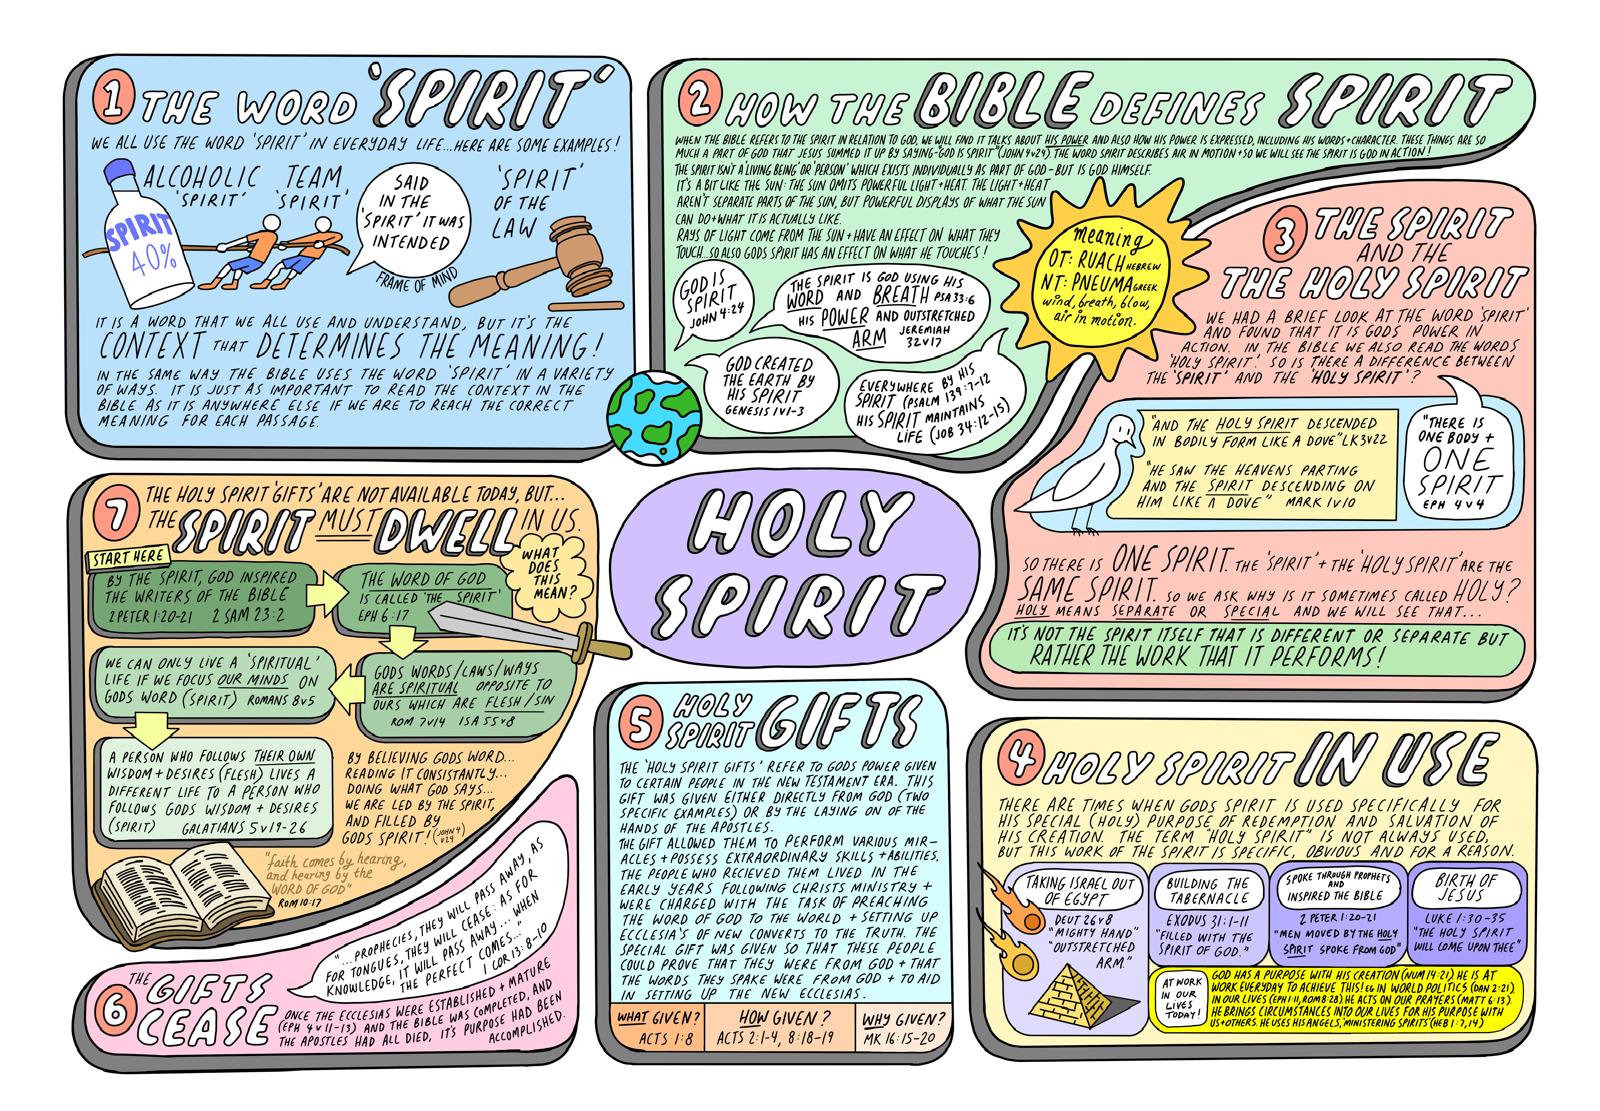 1 THE WORD 'SPIRIT'
WE ALL USE THE WORD 'SPIRIT' IN EVERYDAY LIFE...HERE ARE SOME EXAMPLES!
ALCOHOLIC
'SPIRIT'
SPIRIT
40%
TEAM
'SPIRIT'
SAID
IN THE
'SPIRIT' IT WAS
INTENDED
FRAME OF MIND
'SPIRIT'
OF THE
LAW
IT IS A WORD THAT WE ALL USE AND UNDERSTAND, BUT IT'S THE
CONTEXT THAT DETERMINES THE MEANING!
IN THE SAME WAY THE BIBLE USES THE WORD 'SPIRIT' IN A VARIETY
OF WAYS. IT IS JUST AS IMPORTANT TO READ THE CONTEXT IN THE
BIBLE AS IT IS ANYWHERE ELSE IF WE ARE TO REACH THE CORRECT
MEANING FOR EACH PASSAGE.
2 HOW THE BIBLE DEFINES SPIRIT
WHEN THE BIBLE REFERS TO THE SPIRIT IN RELATION TO GOD, WE WILL FIND IT TALKS ABOUT HIS POWER AND ALSO HOW HIS POWER IS EXPRESSED, INCLUDING HIS WORDS+CHARACTER. THESE THINGS ARE SO
MUCH A PART OF GOD THAT JESUS SUMMED IT UP BY SAYING-"GOD IS SPIRIT"(JOHN 4v24) THE WORD SPIRIT DESCRIBES AIR IN MOTION+SO WE WILL SEE THE SPIRIT IS GOD IN ACTION!
THE SPIRIT ISN'T A 'LIVING BEING' OR 'PERSON' WHICH EXISTS INDIVIDUALLY AS PART OF GOD-BUT IS GOD HIMSELF.
IT'S A BIT LIKE THE SUN: THE SUN OMITS POWERFUL LIGHT+HEAT. THE LIGHT+HEAT
AREN'T SEPARATE PARTS OF THE SUN, BUT POWERFUL DISPLAYS OF WHAT THE SUN
CAN DO+WHAT IT IS ACTUALLY LIKE.
RAYS OF LIGHT COME FROM THE SUN+HAVE AN EFFECT ON WHAT THEY
TOUCH...SO ALSO GODS SPIRIT HAS AN EFFECT ON WHAT HE TOUCHES!
GOD IS
SPIRIT
JOHN 4:24
THE SPIRIT IS GOD USING HIS
WORD AND BREATH PSA 33:6
HIS POWER AND OUTSTRETCHED
ARM JEREMIAH
32v17
GOD CREATED
THE EARTH BY
HIS SPIRIT
GENESIS 1v1-3
EVERYWHERE BY HIS
SPIRIT (PSALM 139:7-12
HIS SPIRIT MAINTAINS
LIFE (JOB 34:12-15)
meaning
OT: RUACH HEBREW
NT: PNEUMA GREEK
wind, breath, blow,
air in motion.
3 THE SPIRIT
AND THE
THE HOLY SPIRIT
WE HAD A BRIEF LOOK AT THE WORD 'SPIRIT'
AND FOUND THAT IT IS GODS POWER IN
ACTION. IN THE BIBLE WE ALSO READ THE WORDS
'HOLY SPIRIT'. SO IS THERE A DIFFERENCE BETWEEN
THE 'SPIRIT' AND THE 'HOLY SPIRIT'?
"AND THE HOLY SPIRIT DESCENDED
IN BODILY FORM LIKE A DOVE" LK3v22
"HE SAW THE HEAVENS PARTING
AND THE SPIRIT DESCENDING ON
HIM LIKE A DOVE" MARK 1v10
"THERE IS
ONE BODY +
ONE
SPIRIT"
EPH 4v4
SO THERE IS ONE SPIRIT. THE 'SPIRIT' + THE 'HOLY SPIRIT' ARE THE
SAME SPIRIT. SO WE ASK WHY IS IT SOMETIMES CALLED HOLY?
HOLY MEANS SEPARATE OR SPECIAL AND WE WILL SEE THAT...
IT'S NOT THE SPIRIT ITSELF THAT IS DIFFERENT OR SEPARATE BUT
RATHER THE WORK THAT IT PERFORMS!
HOLY
SPIRIT
7 THE HOLY SPIRIT 'GIFTS' ARE NOT AVAILABLE TODAY, BUT...
THE SPIRIT MUST DWELL IN US.
START HERE
WHAT
DOES
THIS
MEAN?
BY THE SPIRIT, GOD INSPIRED
THE WRITERS OF THE BIBLE
2 PETER 1:20-21 2 SAM 23:2
THE WORD OF GOD
IS CALLED 'THE SPIRIT'
EPH 6:17
WE CAN ONLY LIVE A 'SPIRITUAL'
LIFE IF WE FOCUS OUR MINDS ON
GODS WORD (SPIRIT) ROMANS 8v5
GODS WORDS/LAWS/WAYS
ARE SPIRITUAL OPPOSITE TO
OURS WHICH ARE FLESH/SIN
ROM 7v14 ISA 55v8
A PERSON WHO FOLLOWS THEIR OWN
WISDOM+DESIRES (FLESH) LIVES A
DIFFERENT LIFE TO A PERSON WHO
FOLLOWS GODS WISDOM + DESIRES
(SPIRIT) GALATIANS 5v19-26
BY BELIEVING GODS WORD...
READING IT CONSISTANTLY...
DOING WHAT GOD SAYS...
WE ARE LED BY THE SPIRIT,
AND FILLED BY
GODS SPIRIT! (JOHN 4)
v24
"faith comes by hearing,
and hearing by the
WORD OF GOD"
ROM 10:17
5 HOLY
SPIRIT GIFTS
THE 'HOLY SPIRIT GIFTS' REFER TO GODS POWER GIVEN
TO CERTAIN PEOPLE IN THE NEW TESTAMENT ERA. THIS
GIFT WAS GIVEN EITHER DIRECTLY FROM GOD (TWO
SPECIFIC EXAMPLES) OR BY THE LAYING ON OF THE
HANDS OF THE APOSTLES.
THE GIFT ALLOWED THEM TO PERFORM VARIOUS MIR-
ACLES+POSSESS EXTRAORDINARY SKILLS+ABILITIES.
THE PEOPLE WHO RECIEVED THEM LIVED IN THE
EARLY YEARS FOLLOWING CHRISTS MINISTRY +
WERE CHARGED WITH THE TASK OF PREACHING
THE WORD OF GOD TO THE WORLD + SETTING UP
ECCLESIA'S OF NEW CONVERTS TO THE TRUTH. THE
SPECIAL GIFT WAS GIVEN SO THAT THESE PEOPLE
COULD PROVE THAT THEY WERE FROM GOD + THAT
THE WORDS THEY SPAKE WERE FROM GOD + TO AID
IN SETTING UP THE NEW ECCLESIAS.
WHAT GIVEN?
ACTS 1:8
HOW GIVEN?
ACTS 2:1-4, 8:18-19
WHY GIVEN?
MK 16:15-20
4 HOLY SPIRIT IN USE
THERE ARE TIMES WHEN GODS SPIRIT IS USED SPECIFICALLY FOR
HIS SPECIAL (HOLY) PURPOSE OF REDEMPTION AND SALVATION OF
HIS CREATION. THE TERM "HOLY SPIRIT" IS NOT ALWAYS USED,
BUT THIS WORK OF THE SPIRIT IS SPECIFIC, OBVIOUS AND FOR A REASON.
TAKING ISRAEL OUT
OF EGYPT
DEUT 26v8
"MIGHTY HAND"
"OUTSTRETCHED
ARM."
BUILDING THE
TABERNACLE
EXODUS 31:1-11
"FILLED WITH THE
SPIRIT OF GOD."
SPOKE THROUGH PROPHETS
AND
INSPIRED THE BIBLE
2 PETER 1:20-21
"MEN MOVED BY THE HOLY
SPIRIT SPOKE FROM GOD"
BIRTH OF
JESUS
LUKE 1:30-35
"THE HOLY SPIRIT
WILL COME UPON THEE"
AT WORK
IN OUR
LIVES
TODAY!
GOD HAS A PURPOSE WITH HIS CREATION (NUM 14:21) HE IS AT
WORK EVERYDAY TO ACHIEVE THIS! EG IN WORLD POLITICS (DAN 2:21)
IN OUR LIVES (EPH 1:11, ROM 8:28) HE ACTS ON OUR PRAYERS (MATT 6:13)
HE BRINGS CIRCUMSTANCES INTO OUR LIVES FOR HIS PURPOSE WITH
US+OTHERS. HE USES HIS ANGELS, 'MINISTERING SPIRITS' (HEB 1:7,14)
6 THE
GIFTS
CEASE
"...PROPHECIES, THEY WILL PASS AWAY, AS
FOR TONGUES, THEY WILL CEASE: AS FOR
KNOWLEDGE, IT WILL PASS AWAY... WHEN
THE PERFECT COMES..."
1 COR 13:8-10
ONCE THE ECCLESIAS WERE ESTABLISHED + MATURE
(EPH 4v11-13) AND THE BIBLE WAS COMPLETED, AND
THE APOSTLES HAD ALL DIED, IT'S PURPOSE HAD BEEN
ACCOMPLISHED.